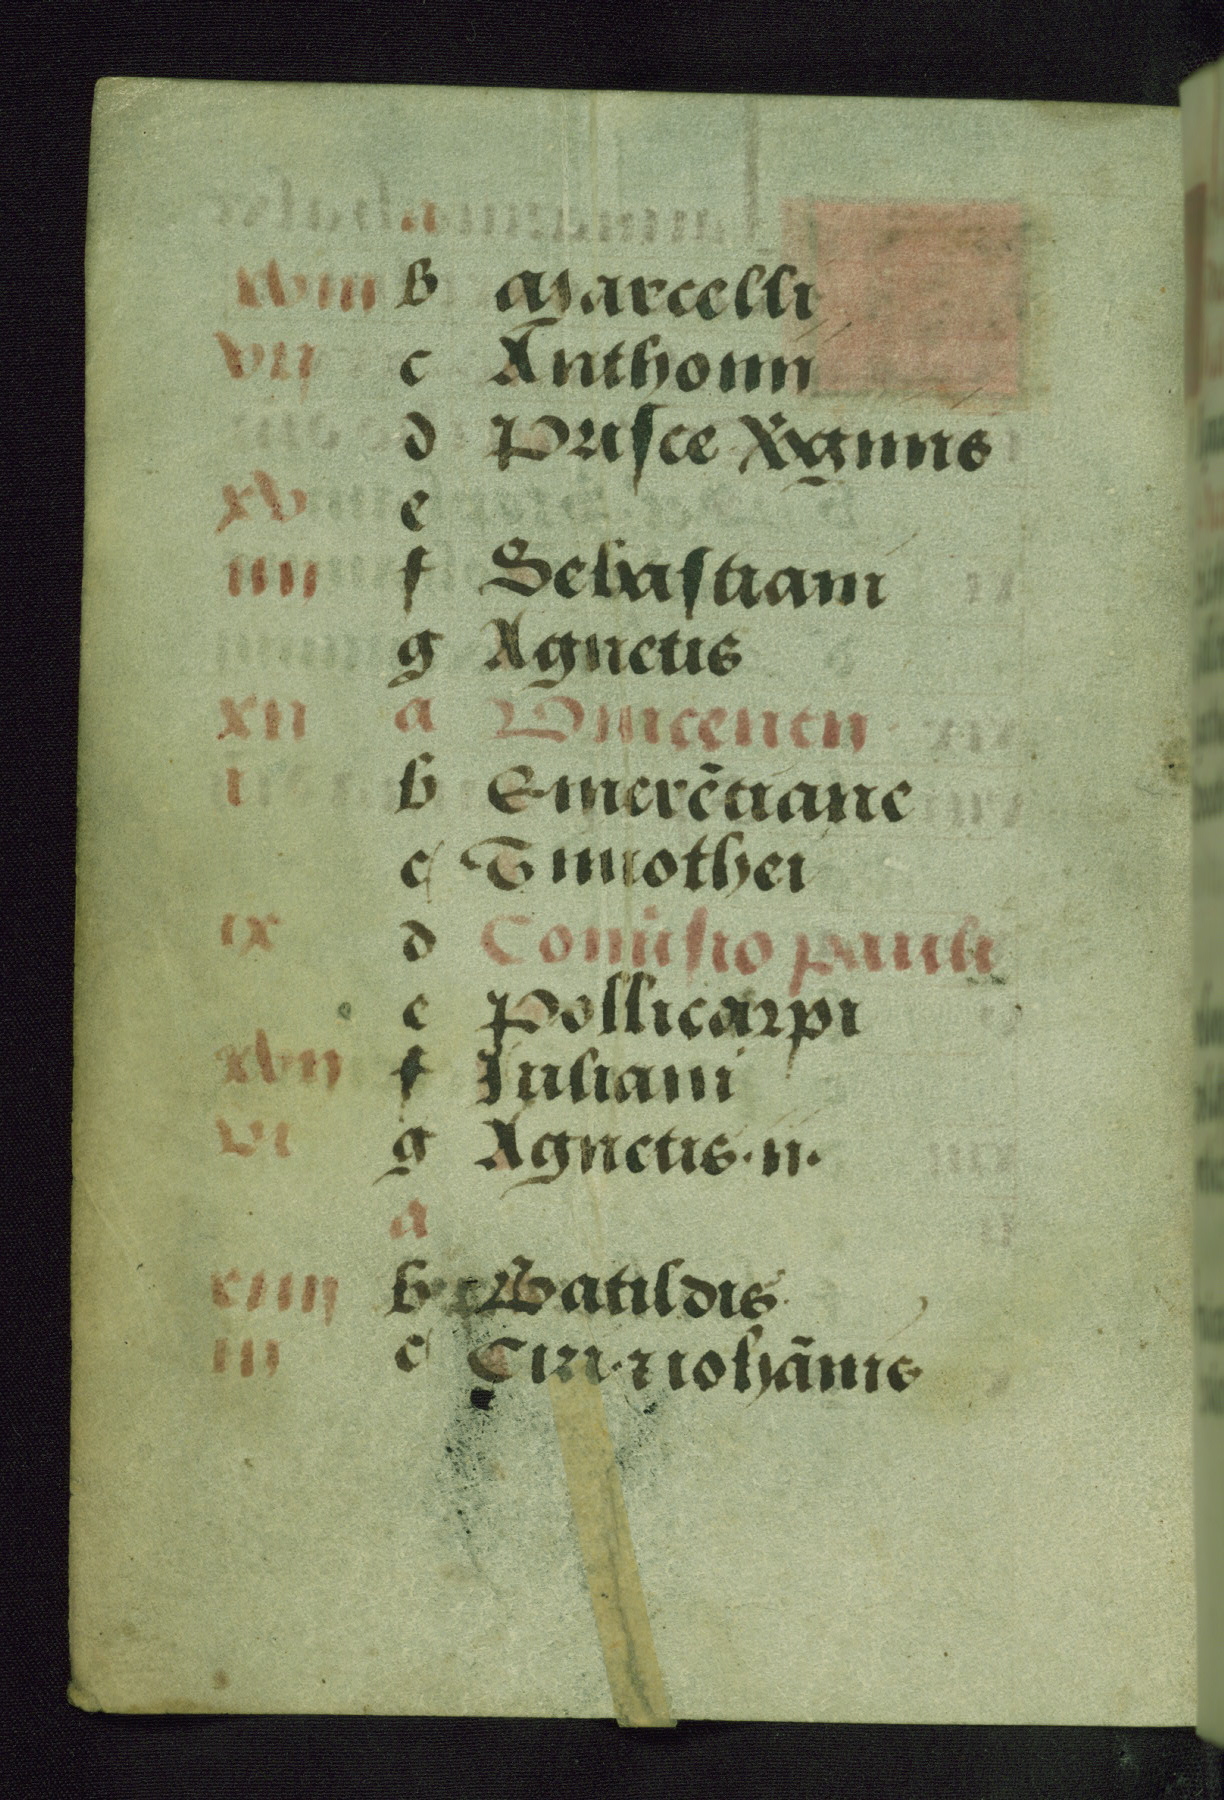 a
xviii b Marcelli
vii c Anthonii
d Prisce
xv e
iiii f Sebastiani
g Agnetis
xii a Vincencii
i b Emerẽciane
c Timothei
ix d pauli
e Pollicarpi
xvii f Iuliani
vi g Agnetis·ii·
a
xiiii b Batildis
iii c Ciri·⁊ iohãnis